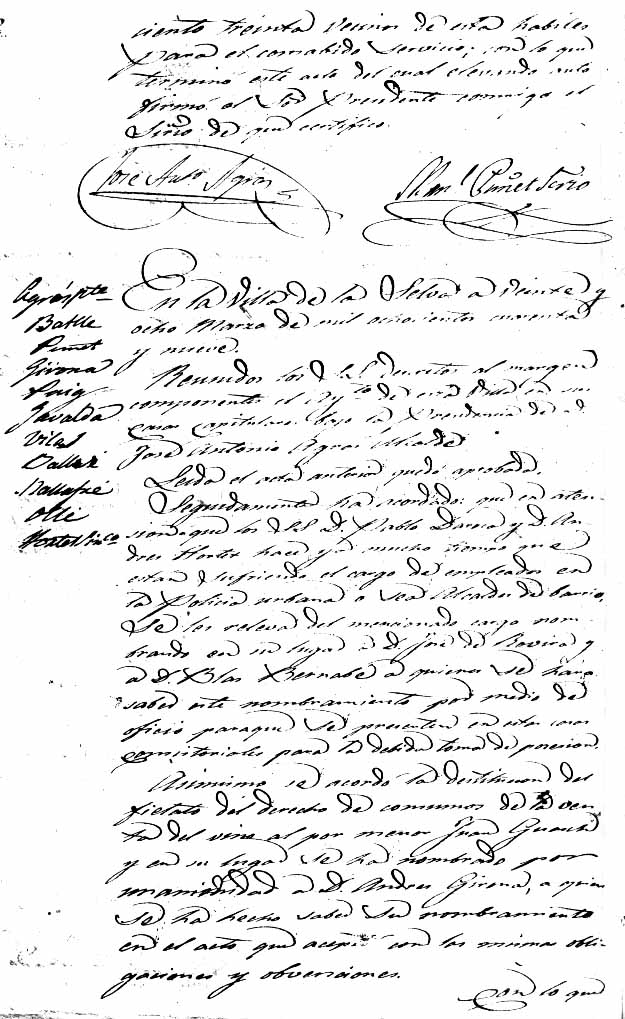 ciento treinta vecinos de esta habiles
para el consabido servicio; con lo que
terminó este acto del cual elevando auto
firmó el Sor Presidente conmigo el
Srio de que certifico.
José Anto Agras
Man.l Pinet Serio
Agrás pte
Batlle
Pinet
Girona
Puig
Javaldá
Vilas
Ballafre
Olle
En la Villa de la Selva a veinte y
ocho Marzo de mil ochocientos cuarenta
y nueve.
Reunidos los S.S. descritos al margen
componentes el Ayto de esta Villa en sus
casas capitulares bajo la Presidencia de D.
José Antonio Agras Alcalde
Leida el acta anterior quedó aprobada.
Seguidamente ha acordado: que en aten-
sion a que los S.S. D. Pablo y D. An-
dres Hortet hace ya mucho tiempo que
estan sufriendo el cargo de empleados en
la Policia urbana o sea Alcaldes de barrio,
se les releva del mencionado cargo nom-
brando en su lugar á D. José de Rovira y
a D. Blas Bernabe a quienes se hará
saber este nombramiento por medio de
oficio paraque se presenten en estas casas
consistoriales para la debida toma de posecion.
Asimismo se acordó la destitucion del
fielato del derecho de consumos de la ven-
ta del vino al por menor Juan Guasch
y en su lugar se ha nombrado por
unanimidad a D. Andres Girona, a quien
se ha hecho saber su nombramiento
en el acto que aceptó con las mismas obli-
gaciones y obvenciones.
Con lo que